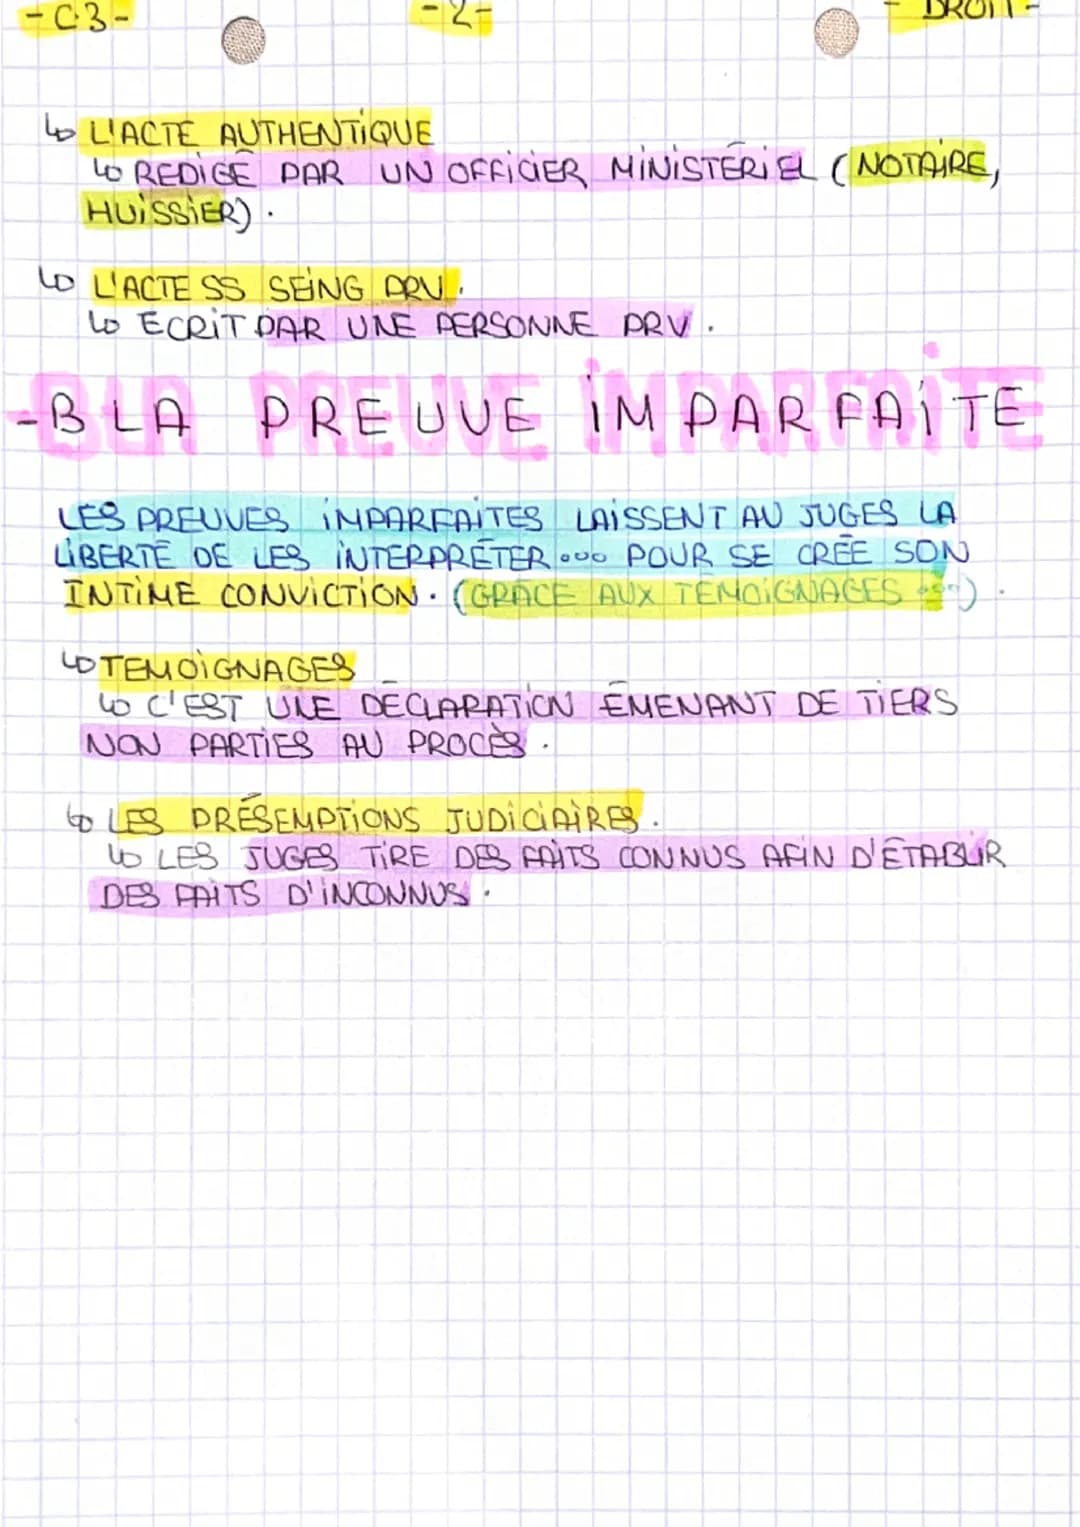 -C3-
-2-
- DROIT -
↳ L'ACTE AUTHENTIQUE
↳ REDIGÉ PAR UN OFFICIER MINISTÉRIEL (NOTAIRE,
HUISSIER).
↳ L'ACTE SS SEING PRV.
↳ ECRIT PAR UNE PERSONNE PRV.
-B LA PREUVE IMPARFAITE
LES PREUVES IMPARFAITES LAISSENT AU JUGES LA
LIBERTÉ DE LES INTERPRÉTER... POUR SE CRÉE SON
INTIME CONVICTION. (GRÂCE AUX TÉMOIGNAGES ...).
↳ TEMOIGNAGES
↳ C'EST UNE DÉCLARATION ÉMENANT DE TIERS
NON PARTIES AU PROCÈS.
↳ LES PRÉSEMPTIONS JUDICIAIRES.
↳ LES JUGES TIRE DES FAITS CONNUS AFIN D'ÉTABLIR
DES FAITS D'INCONNUS.